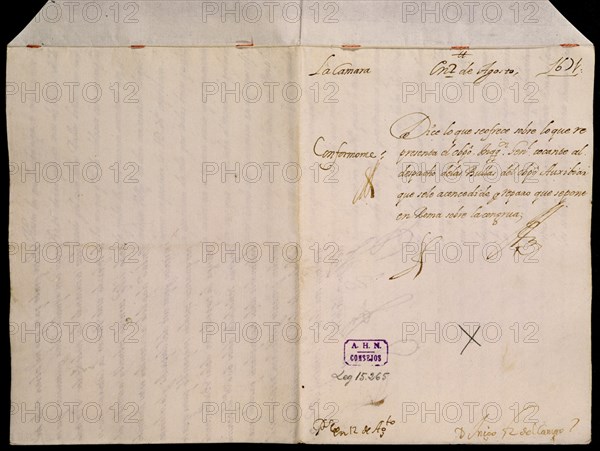 La Camara
En 2 de Agosto, 1651.
Conformome;
Dice lo que se ofrece sobre lo que re
presenta el obpo. tocante al
despacho de las Bullas del obpo Auxiliar
que se le a concedido y reparo que se pone
en Roma sobre la congrua;
A. H. N.
CONSEJOS
Leg 15.265
en 12 de Agto
PHOTO 12